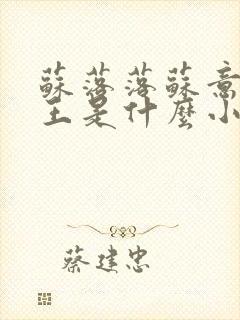 蘇落落蘇意
王是什麼小
蔡建忠